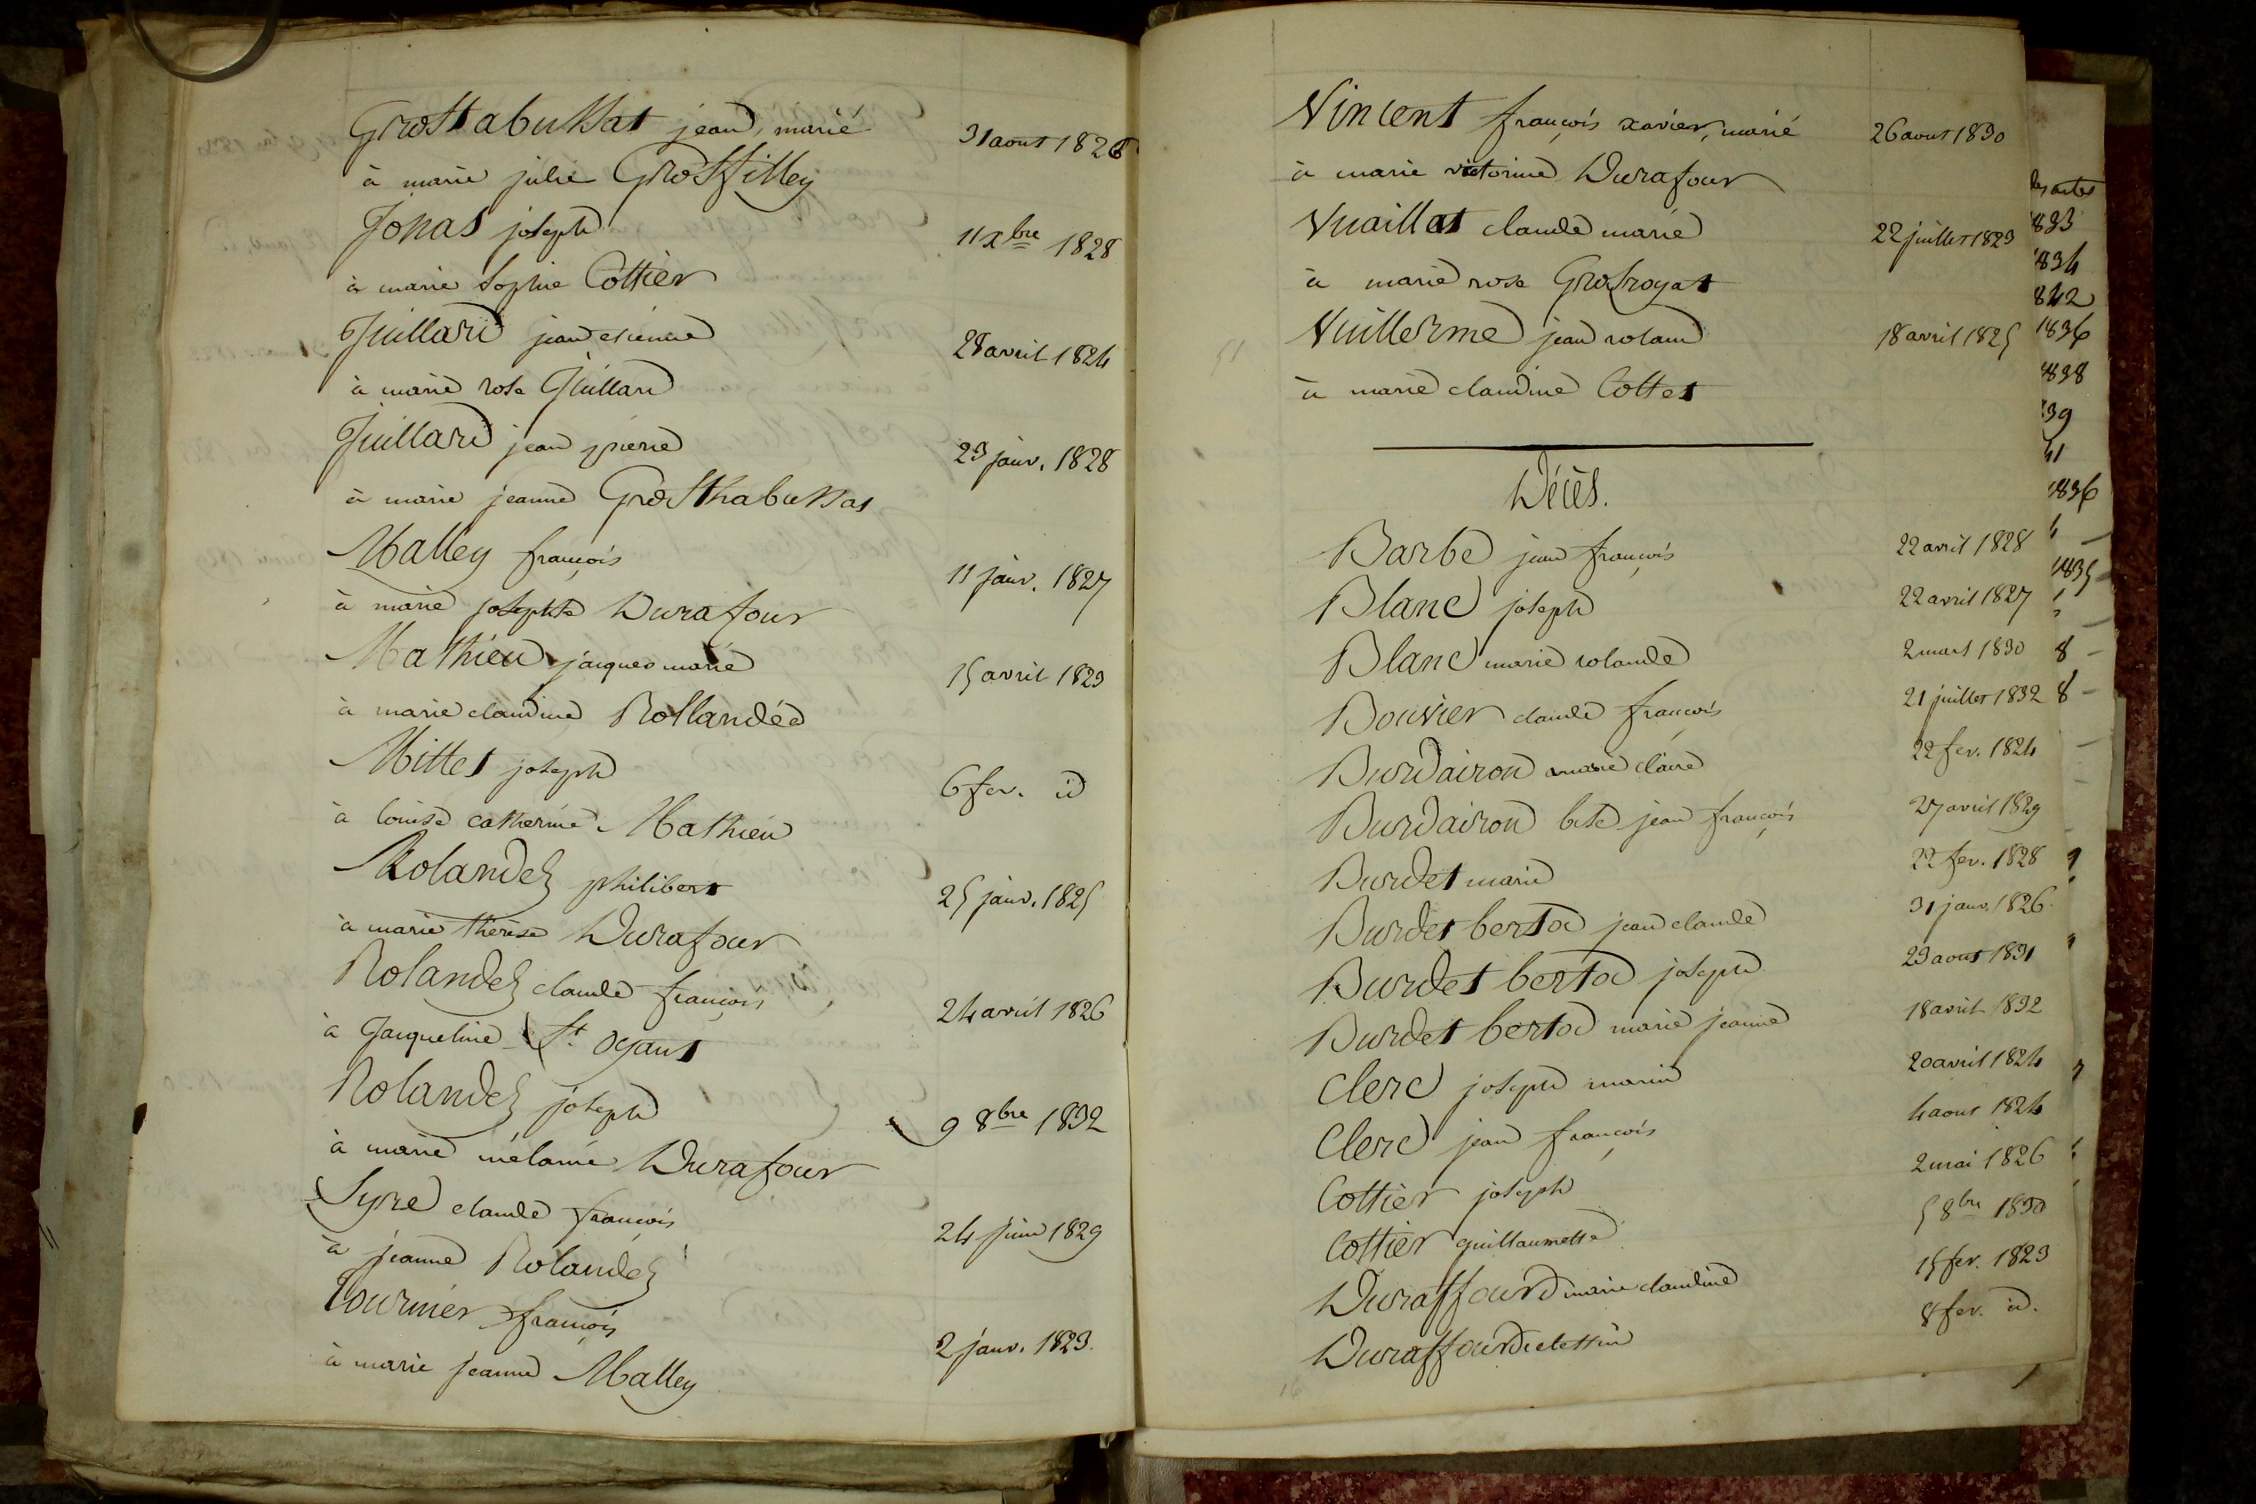 Grostabussat jean, marié 31 aout 1826
à marie julie Grosfilley
Jonas joseph 11 xbre 1828
à marie Sophie Cottier
Juillard jean etienne 28 avril 1824
à marie rose Juillard
Juillard jean pierre 23 janv. 1828
à marie jeanne Grosthabussat
Malley françois 11 janv. 1827
à marie josephte Durafour
Mathieu jacques marie 15 avril 1823
à marie claudine Rollandée
Mittet joseph 6 fev. id
à louise catherine Mathieu
Rolandez philibert 25 janv. 1825
à marie thérèse Durafour
Rolandez claude françois 24 avril 1826
à Jacqueline St. oyant
Rolandez joseph 9 8bre 1832
à marie mélanie Durafour
Syre claude françois 24 juin 1829
à jeanne Rolandez
Tournier françois 2 janv. 1823.
à marie jeanne Malley
Vincent françois xavier, marié 26 aout 1830
à marie victorine Durafour
Vuaillat claude marie 22 juillet 1823
à marie rose Grosroyat
Vuillerme jean roland 18 avril 1825
à marie claudine Cottet
Décès.
Barbe jean françois 22 avril 1828
Blanc joseph 22 avril 1827
Blanc marie rolande 2 mars 1830
Bouvier claude françois 21 juillet 1832
Burdairon marie claire 22 fev. 1824
Burdairon bete jean françois 27 avril 1829
Burdet marie 22 fev. 1828
Burdet bertod jean claude 31 janv. 1826.
Burdet bertod joseph 23 aout 1831
Burdet bertod marie jeanne 18 avril 1832
Clerc joseph marie 20 avril 1824
Clerc jean françois 4 aout 1824
Cottier joseph 2 mai 1826
Cottier guillaumette 5 8bre 1830
Duraffourd marie claudine 15 fev. 1823
Duraffourd 8 fev. id.
1834
1836
1838
1836
1835